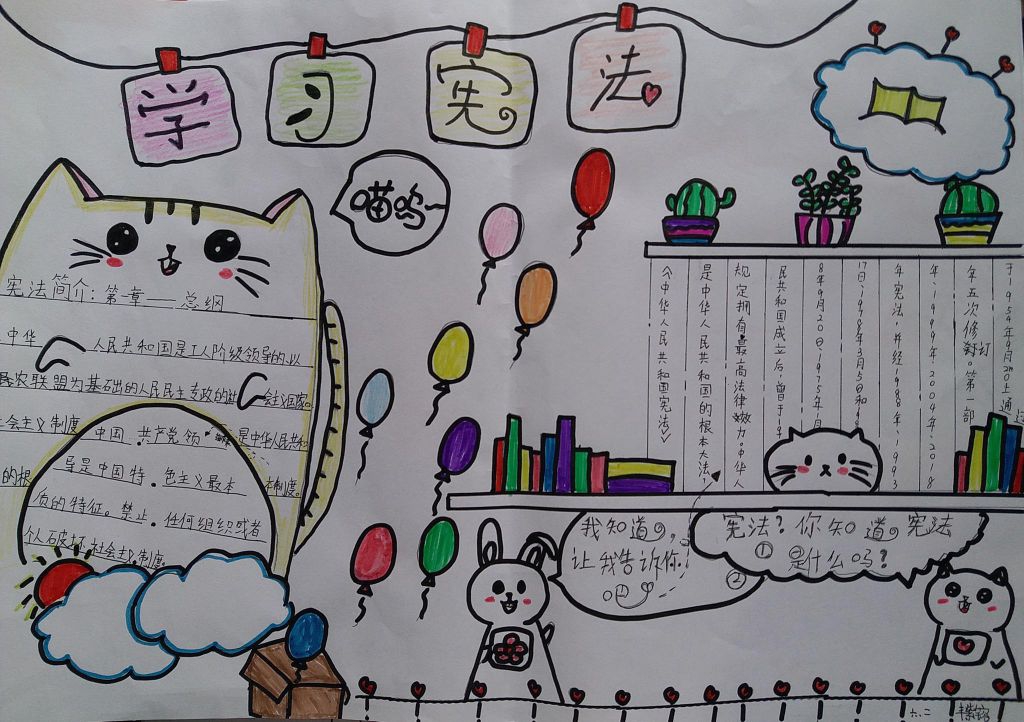 学习宪法
喵呜~
宪法简介:第一章——总纲
中华 人民共和国是工人阶级领导的、以
农联盟为基础的人民民主专政的社 会主义国家。
会主义制度 是中华人民共和
的根 本制度。
中国 共产党领
导是中国特 色主义最本
质的特征。禁止 任何组织或者
个人破坏 社会主义制度。
《中华人民共和国宪法》
是中华人民共和国的根本大法,
规定拥有最高法律效力。中华人
民共和国成立后,曾于1
8年9月20日、1975年1月
17日、1978年3月5日和
年宪法,并经1988年、1993
年、1999年、2004年、2018
年五次修订。第一部
于1954年9月20日通
宪法?你知道宪法
①是什么吗?
我知道,
让我告诉你!
②吧
六.二